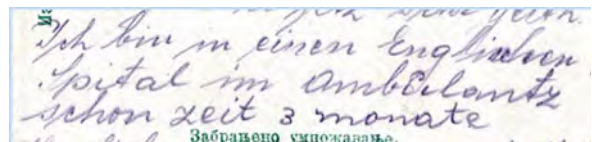 Ich bin in einen Englischen
Spital im Ambulantz
schon zeit 3 monate
Забрањено умножавање.